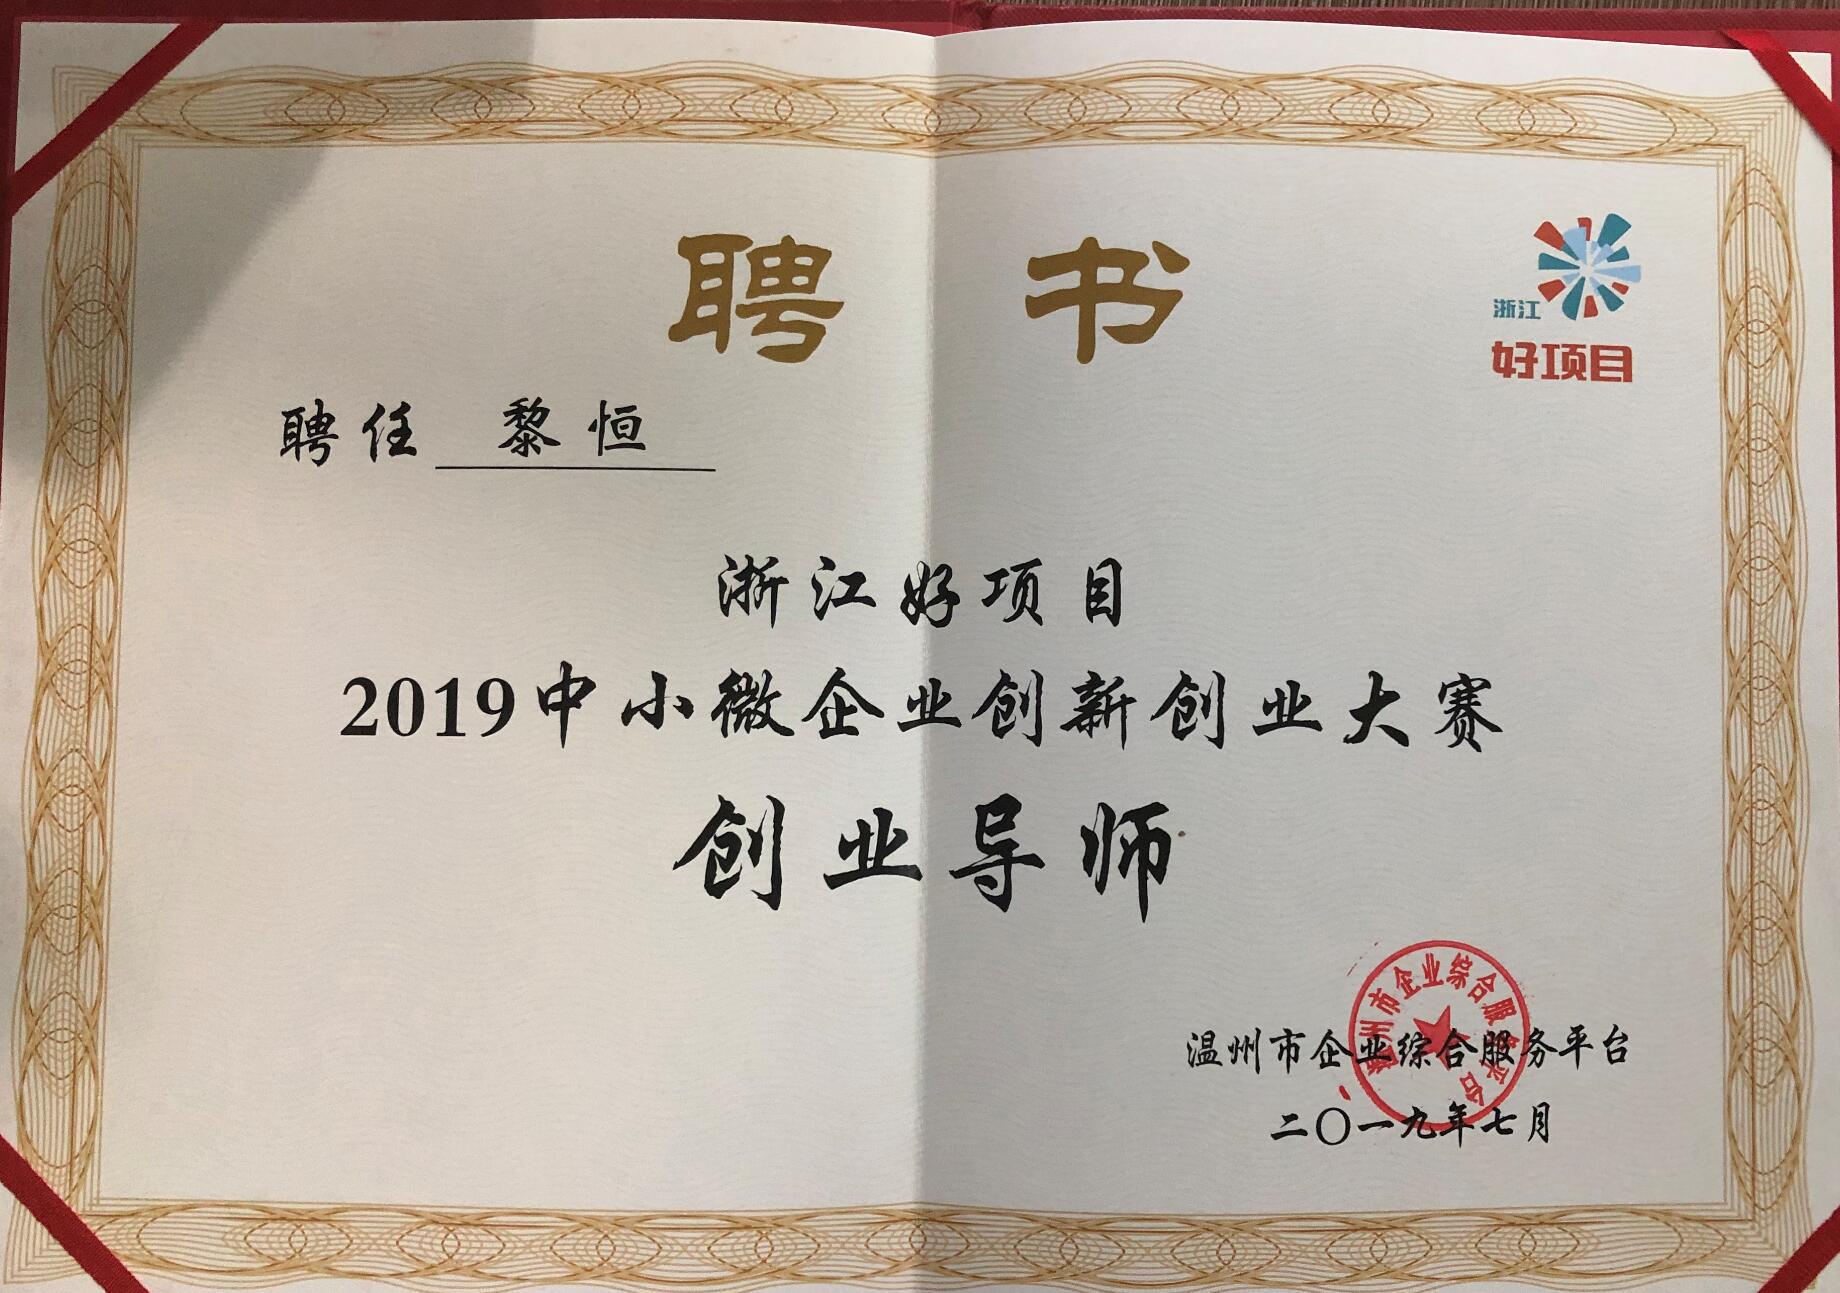 聘书
浙江
好项目
聘任 黎恒
浙江好项目
2019中小微企业创新创业大赛
创业导师
温州市企业综合服务平台
温州市企业综合服务平台
二〇一九年七月